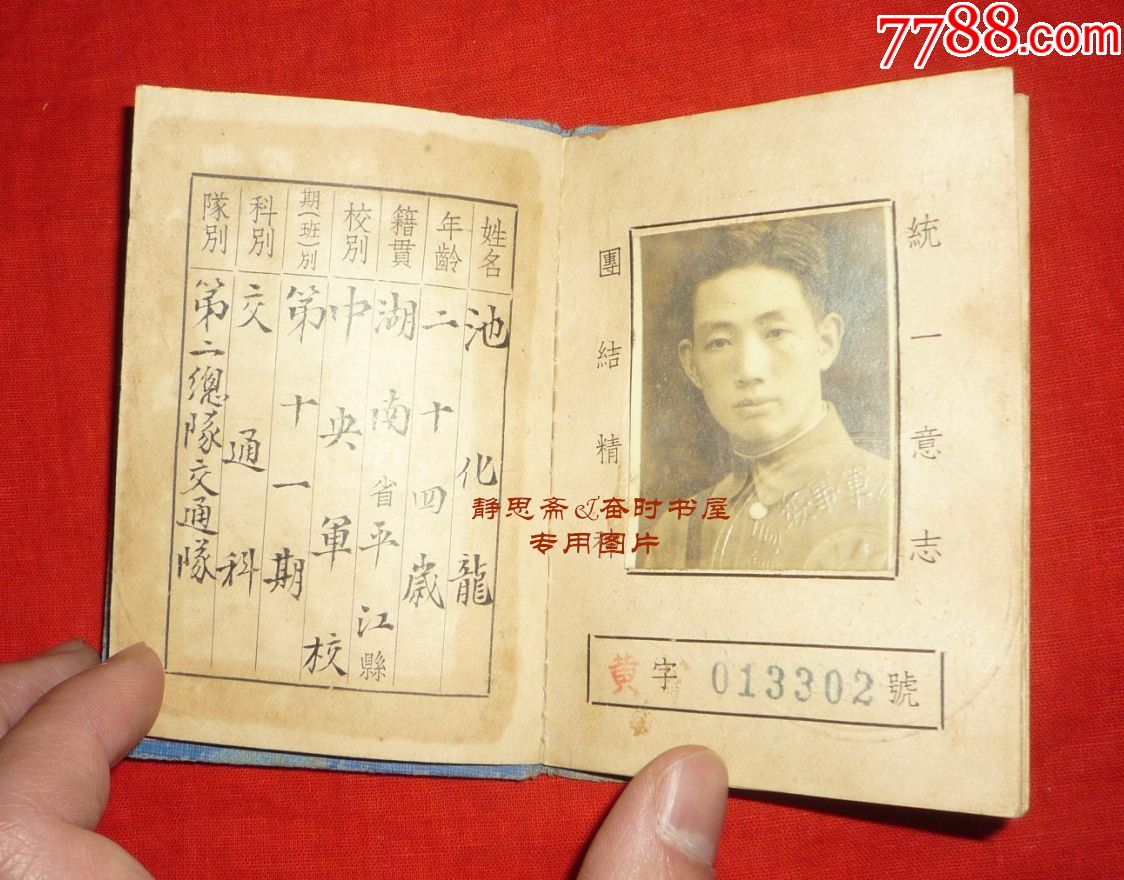 7788.com
統一意志
團結精神
黄字013302號
姓名 池化龍
年齡 二十四歲
籍貫 湖南省平江縣
校別 中央軍校
期(班)別 第十一期
科別 交通科
隊別 第二總隊交通隊
静思斋&奋时书屋
专用图片